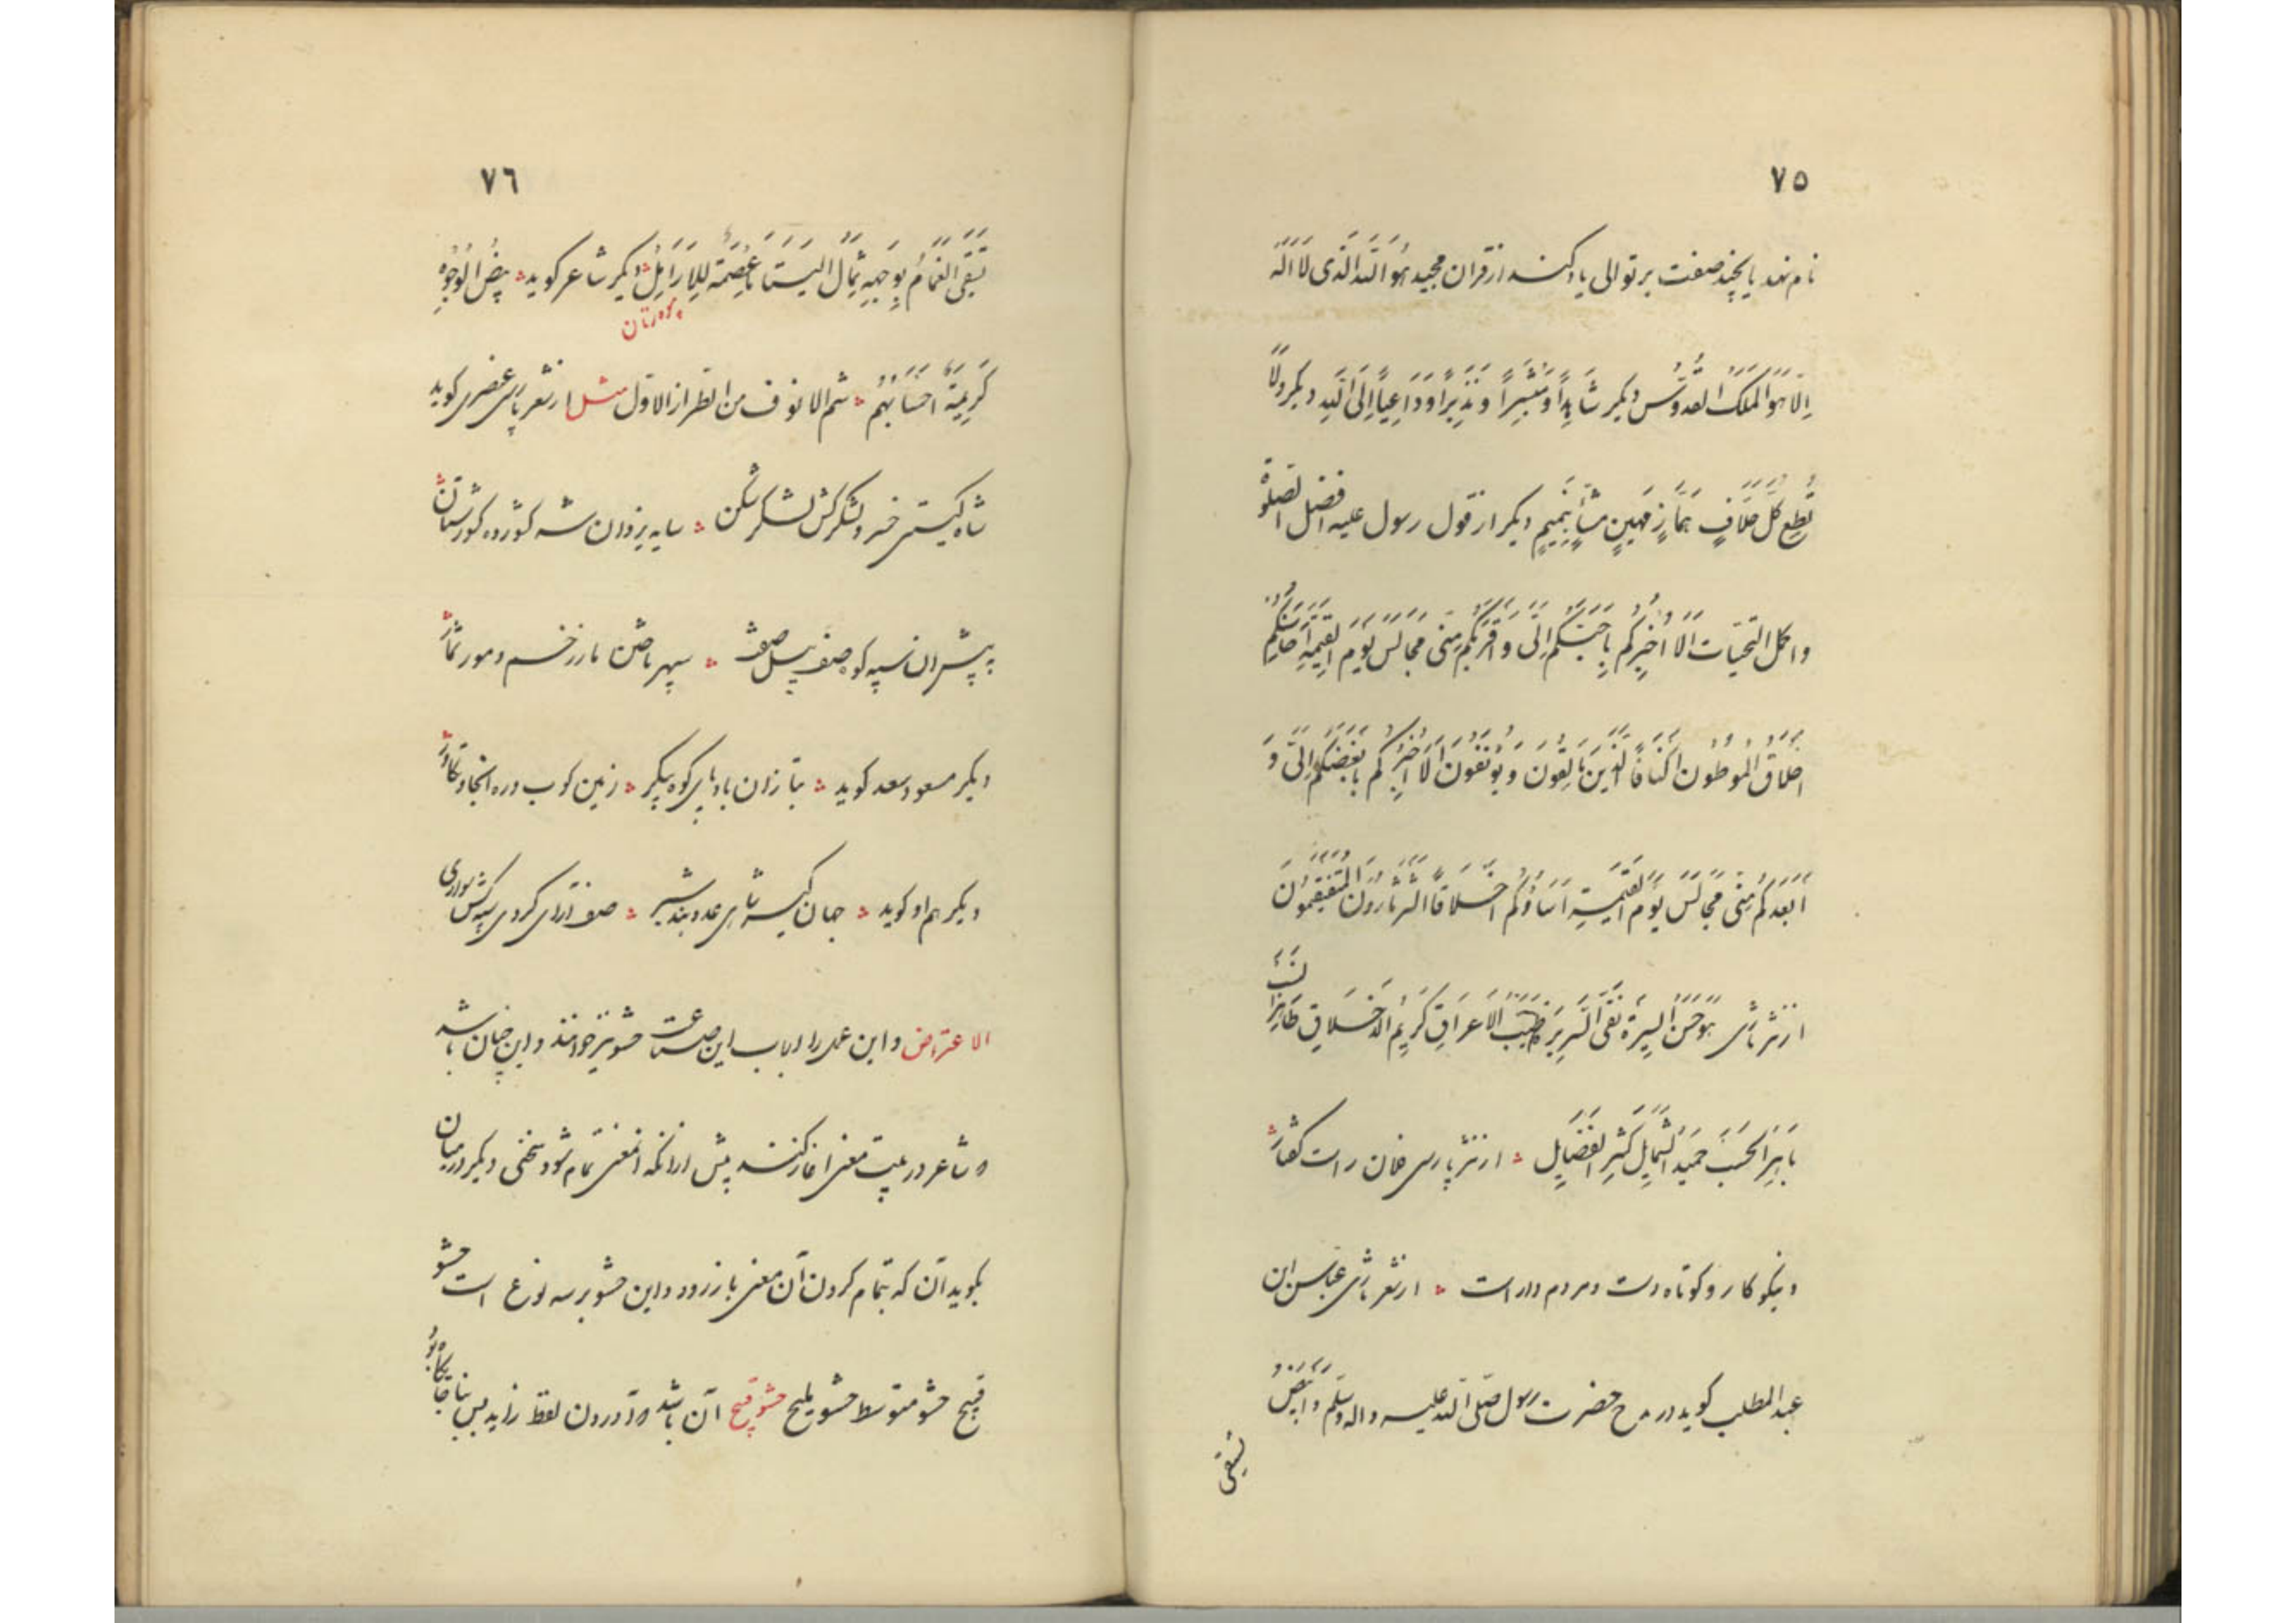 ٧٥
نام نهد یا بچند صفت بر توالی یاد کنند از قران مجید هُوَ اللّهُ الَّذی لَا اِلٰهَ
اِلّا هُوَ المَلِکُ القُدُّوسُ دیکر شَاهِداً وَ مُبَشِّراً وَ نَذِیراً وَ دَاعِیاً اِلَی اللّهِ دیکر وَلَا
تُطِع کُلَّ حَلَّافٍ مَهِینٍ هَمَّازٍ مَشَّاءٍ بِنَمِیمٍ دیکر از قول رسول علیه افضل الصلوة
و اکمل التحیات اَلَا اُخبِرُکُم بِاَحَبِّکُم اِلَیَّ وَ اَقرَبِکُم مِنّی مَجَالِسَ یَومَ القِیٰمَةِ اَحَاسِنُکُم
اَخلَاقاً المُوَطَّئُونَ اَکنَافاً الَّذینَ یَألِفُونَ وَ یُؤلَفُونَ اَلَا اُخبِرُکُم بِاَبغَضِکُم اِلَیَّ وَ
اَبعَدِکُم مِنّی مَجَالِسَ یَومَ القِیٰمَةِ اَسَاوِئُکُم اَخلَاقاً الثَّرثَارُونَ المُتَفَیهِقُونَ
از نثر تازی هُوَ حَسَنُ السِیرَة نَقِیُّ السَّرِیرَة طَیِّبُ الاَعرَاقِ کَرِیمُ الاَخلَاقِ طَاهِرُ النَسَب
بَاهِرُ الحَسَب حَمِیدُ الشَمَایِل کَثِیرُ الفَضَایِل ؞ از نثر پارسی فلان راست کفتار
و نیکو کار و کوتاه دست و مردم دار است ؞ از شعر تازی عباس ابن
عبد المطلب کوید در مدح حضرت رسول صلّی اللّه علیه و اله و سلّم وَ اَبیَضُ
یستسقی
٧٦
یُستَسقَی الغَمَامُ بِوَجهِهِ ثِمَالُ الیَتَامَی عِصمَةٌ لِلاَرَامِلِ ؞ دیکر شاعر کوید ؞ بِیضُ الوُجُوهِ
کَرِیمَةٌ اَحسَابُهُم ؞ شم الانوف من الطراز الاول مثل از شعر پارسی عنصری کوید
شاه کیتی خسرو لشکرکش لشکرشکن ؞ سایه یزدان شه کشورده کشورستان
دیکر مسعود سعد کوید ؞ بتاز آن بادپای کوه پیکر ؞ زمین کوب و ره انجام و تکاور
دیکر هم او کوید ؞ جهان کیر شاهی عدو بند شیری ؞ صف آرای کردی سپه کش سواری
الاعتراض و این عمل را ارباب این صناعت حشو نیز خوانند و این چنان باشد
که شاعر در بیت معنی اغاز کنند پیش از انکه ان معنی تمام شود سخنی دیکر در میان
بکوید آن که بتمام کردن آن معنی باز رود و این حشو بر سه نوع است حشو
قبیح حشو متوسط حشو ملیح حشو قبیح آن باشد که آوردن لفظ زاید بس بناجایکاه بُوَد